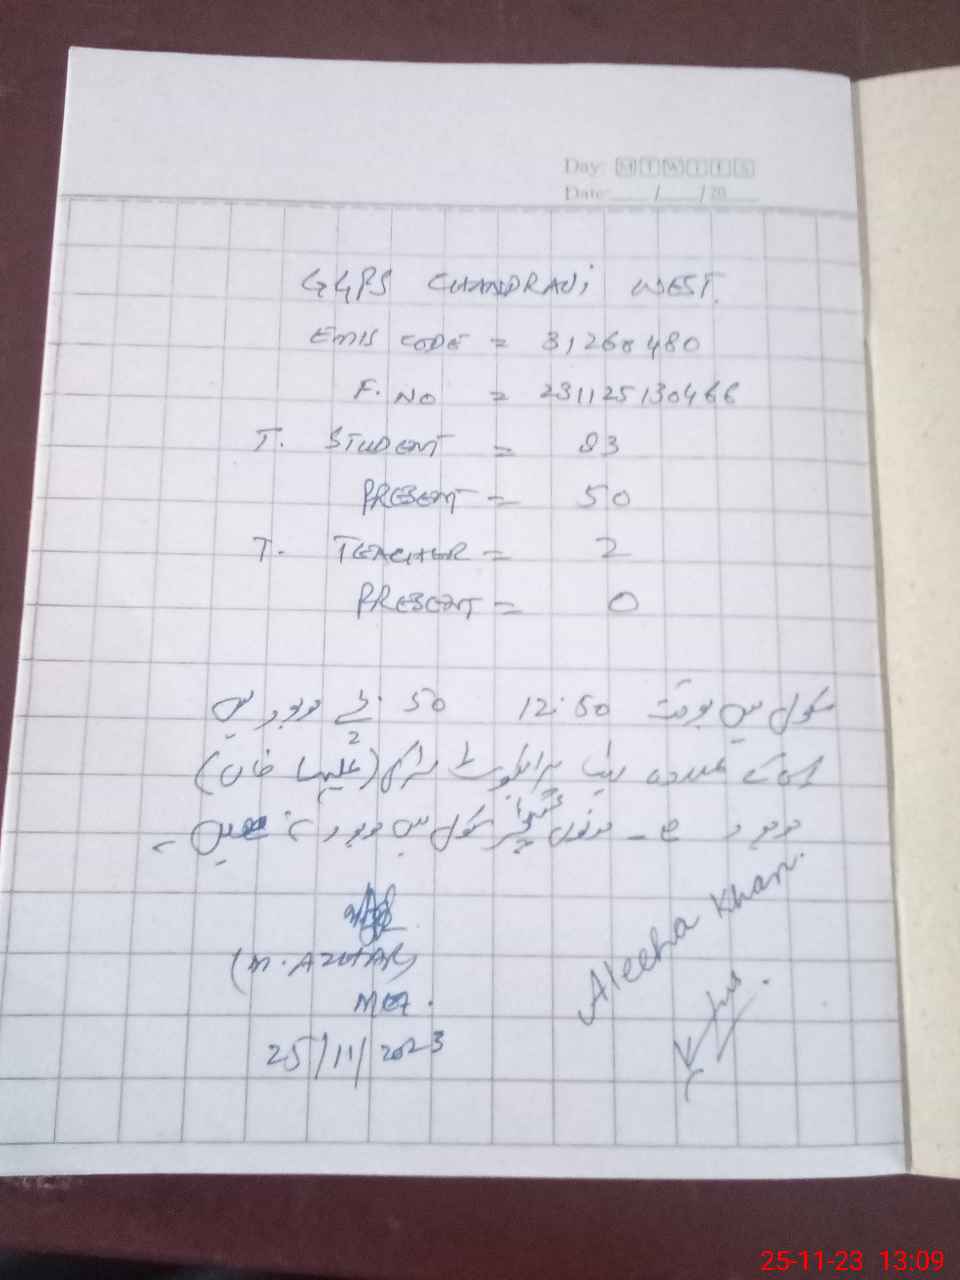 Day: M T W T F S
Date: ___/___/20___
GGPS CHANDRAMI WEST.
EMIS CODE = 31260480
F. NO = 231125130466
T. STUDENT = 83
PRESENT = 50
T. TEACHER = 2
PRESENT = 0
سکول میں بوقت 12:50 50 بچے موجود ہیں
(علیہا خان)
موجود ہے۔ دونوں ٹیچر سکول میں موجود نہیں ہیں۔
(M. AZHAR)
MEA.
25/11/2023
Aleeha Khan.
25-11-23 13:09